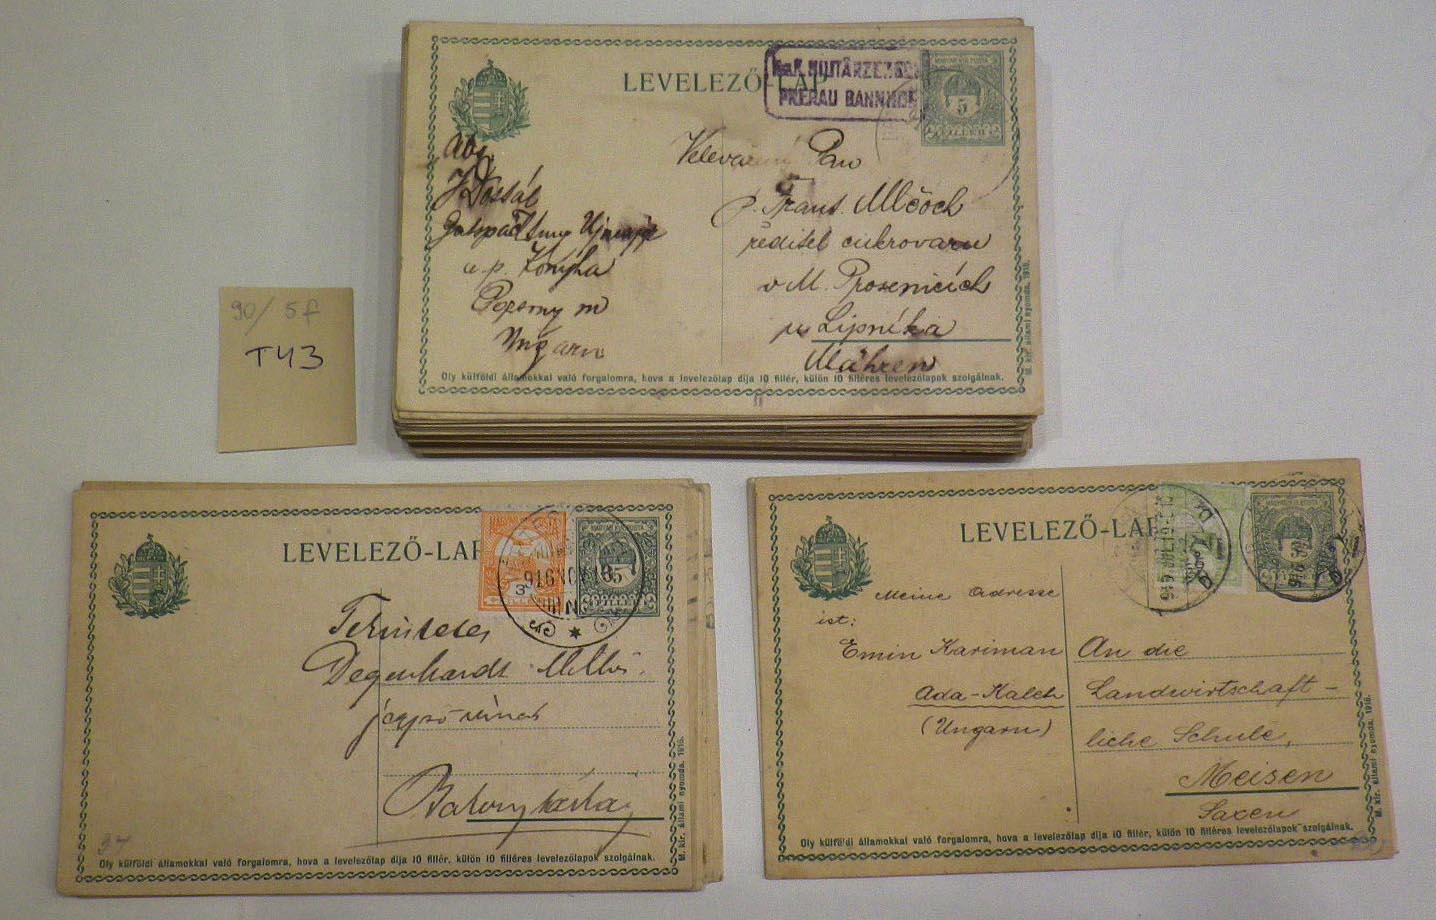 LEVELEZŐ-LAP
K.u.K. MILITÄRZENSUR
PRERAU BAHNHOF
5
Velevážený Pan
p. Frant. Mlčoch
ředitel cukrovaru
v M. Prosenicích
u Lipníka
Mähren
Abs.
J. Dostál
Ujmajor
u. p.
Pozsony m
Ungarn
Oly külföldi államokkal való forgalomra, hova a levelezőlap dija 10 fillér, külön 10 filléres levelezőlapok szolgálnak.
M. kir. állami nyomda. 1915.
90/5f
T43
LEVELEZŐ-LAP
MAGYAR KIR. POSTA
3
5
916 NOV 10
Degenhardt
jegyző
Oly külföldi államokkal való forgalomra, hova a levelezőlap dija 10 fillér, külön 10 filléres levelezőlapok szolgálnak.
M. kir. állami nyomda. 1915.
37
LEVELEZŐ-LAP
Meine Adresse
ist:
Emin Kariman
Ada-Kaleh
(Ungarn)
An die
Landwirtschaft-
liche Schule,
Meisen
Saxen
Oly külföldi államokkal való forgalomra, hova a levelezőlap dija 10 fillér, külön 10 filléres levelezőlapok szolgálnak.
M. kir. állami nyomda. 1915.